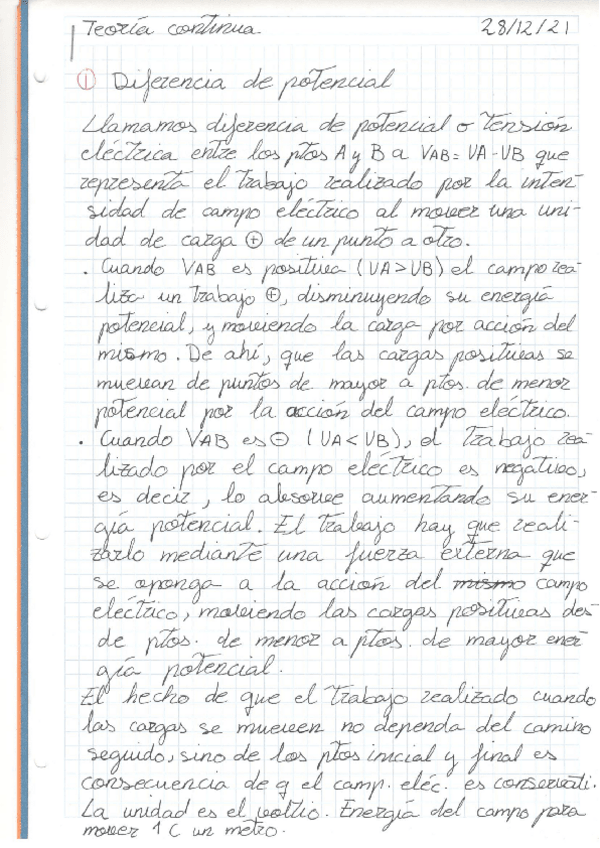 Teoría continua 28/12/21
① Diferencia de potencial
Llamamos diferencia de potencial o tensión
eléctrica entre los ptos A y B a VAB = VA - VB que
representa el trabajo realizado por la inten-
sidad de campo eléctrico al mover una uni-
dad de carga ⊕ de un punto a otro.
. Cuando VAB es positiva (VA>VB) el campo rea-
liza un trabajo ⊕, disminuyendo su energía
potencial, y moviendo la carga por acción del
mismo. De ahí, que las cargas positivas se
muevan de puntos de mayor a ptos. de menor
potencial por la acción del campo eléctrico.
. Cuando VAB es ⊖ (VA<VB), el trabajo rea-
lizado por el campo eléctrico es negativo,
es decir, lo absorve aumentando su ener-
gía potencial. El trabajo hay que reali-
zarlo mediante una fuerza externa que
se oponga a la acción del mismo campo
eléctrico, moviendo las cargas positivas des
de ptos. de menor a ptos. de mayor ener-
gía potencial.
El hecho de que el trabajo realizado cuando
las cargas se mueven no dependa del camino
seguido, sino de los ptos inicial y final es
consecuencia de q el camp. eléc. es conservati.
La unidad es el voltio. Energía del campo para
mover 1 C un metro.